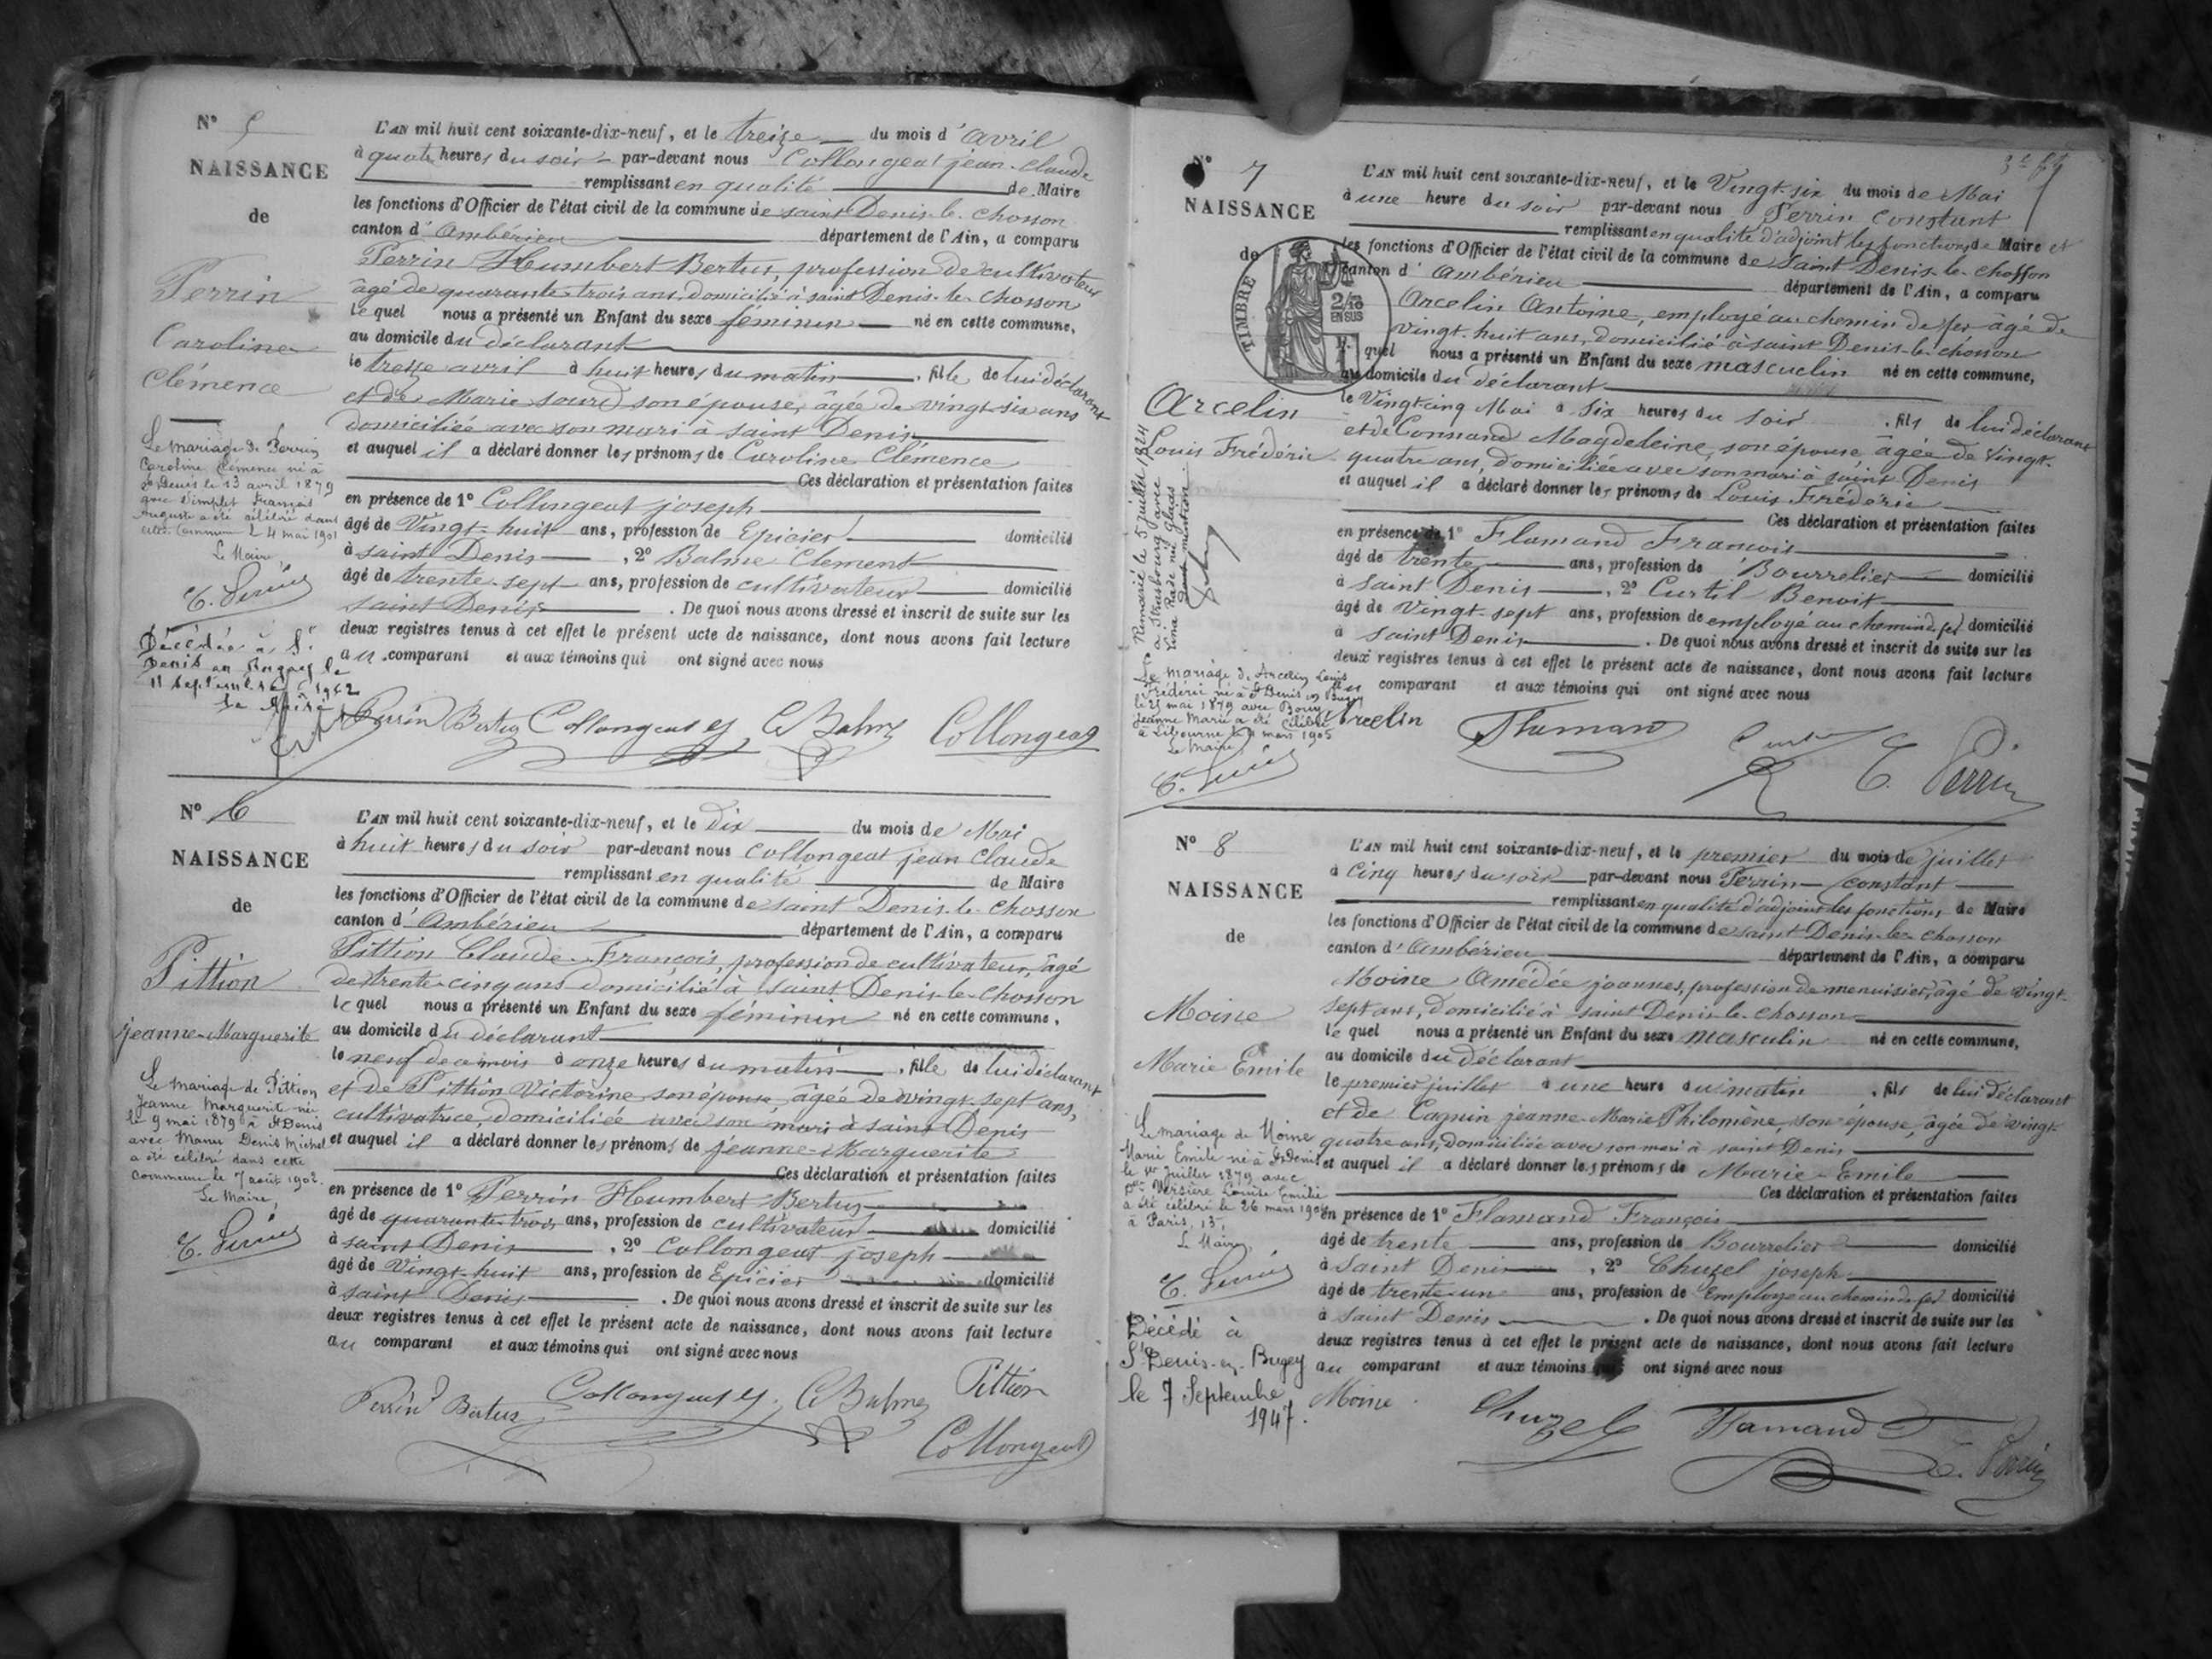 N° 5
NAISSANCE
de
Perrin
Caroline
Clémence
Le mariage de Perrin
Caroline Clémence né à
St Denis le 13 avril 1879
avec Simplet François
Auguste a été célébré dans
cette Commune le 4 mai 1901
Le Maire
Décédée à St
Denis en Bugey le
11 Septembre 1962
Le Maire
L'AN mil huit cent soixante-dix-neuf, et le treize du mois d'avril
à quatre heures du soir par-devant nous Collongeat jean-Claude
remplissant en qualité de Maire
les fonctions d'Officier de l'état civil de la commune de saint Denis-le-Chosson
canton d'Ambérieu département de l'Ain, a comparu
Perrin Humbert Bertus, profession de cultivateur
âgé de quarante-trois ans, domicilié à saint Denis-le-Chosson
lequel nous a présenté un Enfant du sexe féminin né en cette commune,
au domicile du déclarant
le treize avril à huit heures du matin , fille de lui déclarant
et de Marie sourd son épouse, âgée de vingt-six ans
domiciliée avec son mari à saint Denis
et auquel il a déclaré donner les prénoms de Caroline Clémence
Ces déclaration et présentation faites
en présence de 1° Collongeat joseph
âgé de Vingt-huit ans, profession de Epicier domicilié
à saint Denis , 2° Balme Clement
âgé de trente-sept ans, profession de cultivateur domicilié
saint Denis . De quoi nous avons dressé et inscrit de suite sur les
deux registres tenus à cet effet le présent acte de naissance, dont nous avons fait lecture
au comparant et aux témoins qui ont signé avec nous
Perrin Bertus Collongeat C Balme Collongeat
N° 6
NAISSANCE
de
Pittion
jeanne-Marguerite
Le mariage de Pittion
Jeanne Marguerite née
le 9 mai 1879 à St Denis
avec Denis Michel
a été célébré dans cette
commune le 7 août 1902.
Le Maire,
L'AN mil huit cent soixante-dix-neuf, et le dix du mois de Mai
à huit heures du soir par-devant nous Collongeat jean Claude
remplissant en qualité de Maire
les fonctions d'Officier de l'état civil de la commune de saint Denis-le-Chosson
canton d'Ambérieu département de l'Ain, a comparu
Pittion Claude-François, profession de cultivateur, âgé
de trente-cinq ans domicilié à saint Denis-le-Chosson
lequel nous a présenté un Enfant du sexe féminin né en cette commune,
au domicile du déclarant
le neuf de ce mois à onze heures du matin , fille de lui déclarant
et de Pittion Victorine son épouse, âgée de vingt-sept ans,
cultivatrice, domiciliée avec son mari à saint Denis
et auquel il a déclaré donner les prénoms de jeanne-Marguerite
Ces déclaration et présentation faites
en présence de 1° Perrin Humbert Bertus
âgé de quarante-trois ans, profession de cultivateur domicilié
à saint Denis , 2° Collongeat joseph
âgé de Vingt-huit ans, profession de Epicier domicilié
à saint Denis . De quoi nous avons dressé et inscrit de suite sur les
deux registres tenus à cet effet le présent acte de naissance, dont nous avons fait lecture
au comparant et aux témoins qui ont signé avec nous
Perrin Bertus Collongeat C Balme Pittion
Collongeat
N° 7
NAISSANCE
de
TIMBRE
2/10
EN SUS
Arcelin
Louis Frédéric
Remarié le 5 juillet 1924
à Strasbourg avec
Lina Rade née Glaas
Dont mention
Le mariage de Arcelin Louis
Frédéric né à St Denis en Bugey
le 25 mai 1879 avec Bouy
Jeanne Marie a été célébré
à Libourne le mars 1905
Le Maire
L'AN mil huit cent soixante-dix-neuf, et le Vingt-six du mois de Mai
à une heure du soir par-devant nous Perrin Constant
remplissant en qualité d'adjoint les fonctions de Maire et
les fonctions d'Officier de l'état civil de la commune de Saint Denis-le-Chosson
canton d'Ambérieu département de l'Ain, a comparu
Arcelin Antoine, employé au chemin de fer âgé de
Vingt-huit ans, domicilié à saint Denis-le-chosson
lequel nous a présenté un Enfant du sexe masculin né en cette commune,
au domicile du déclarant
le Vingt-cinq Mai à six heures du soir , fils de lui déclarant
et de Connard Magdeleine, son épouse âgée de Vingt-
quatre ans, domiciliée avec son mari à saint Denis
et auquel il a déclaré donner les prénoms de Louis Frédéric
Ces déclaration et présentation faites
en présence de 1° Flamand François
âgé de trente ans, profession de Bourrelier domicilié
à Saint Denis , 2° Curtil Benoit
âgé de Vingt-sept ans, profession de employé au chemin de fer domicilié
à saint Denis . De quoi nous avons dressé et inscrit de suite sur les
deux registres tenus à cet effet le présent acte de naissance, dont nous avons fait lecture
au comparant et aux témoins qui ont signé avec nous
Arcelin Flamand Curtil C. Perrin
N° 8
NAISSANCE
de
Moine
Marie Emile
Le mariage de Moine
Marie Emile né à St Denis
le 1er Juillet 1879 avec
Louise Emilie
a été célébré le 26 mars
à Paris, 13e
Le Maire,
Décédé à
St Denis-en-Bugey
le 7 Septembre
1947.
L'AN mil huit cent soixante-dix-neuf, et le premier du mois de juillet
à Cinq heures du soir par-devant nous Perrin Constant
remplissant en qualité d'adjoint les fonctions de Maire
les fonctions d'Officier de l'état civil de la commune de saint Denis-le-Chosson
canton d'Ambérieu département de l'Ain, a comparu
Moine Amédée joannes, profession de menuisier, âgé de Vingt-
sept ans, domicilié à saint Denis-le-Chosson
lequel nous a présenté un Enfant du sexe masculin né en cette commune,
au domicile du déclarant
le premier juillet à une heure du matin , fils de lui déclarant
et de Cagnin jeanne-Marie Philomène, son épouse, âgée de vingt-
quatre ans, domiciliée avec son mari à saint Denis
et auquel il a déclaré donner les prénoms de Marie-Emile
Ces déclaration et présentation faites
en présence de 1° Flamand François
âgé de trente ans, profession de Bourrelier domicilié
à Saint Denis , 2° Chuzel joseph
âgé de trente-un ans, profession de Employé au chemin de fer domicilié
à saint Denis . De quoi nous avons dressé et inscrit de suite sur les
deux registres tenus à cet effet le présent acte de naissance, dont nous avons fait lecture
au comparant et aux témoins qui ont signé avec nous
Moine Chuzel Flamand C. Perrin